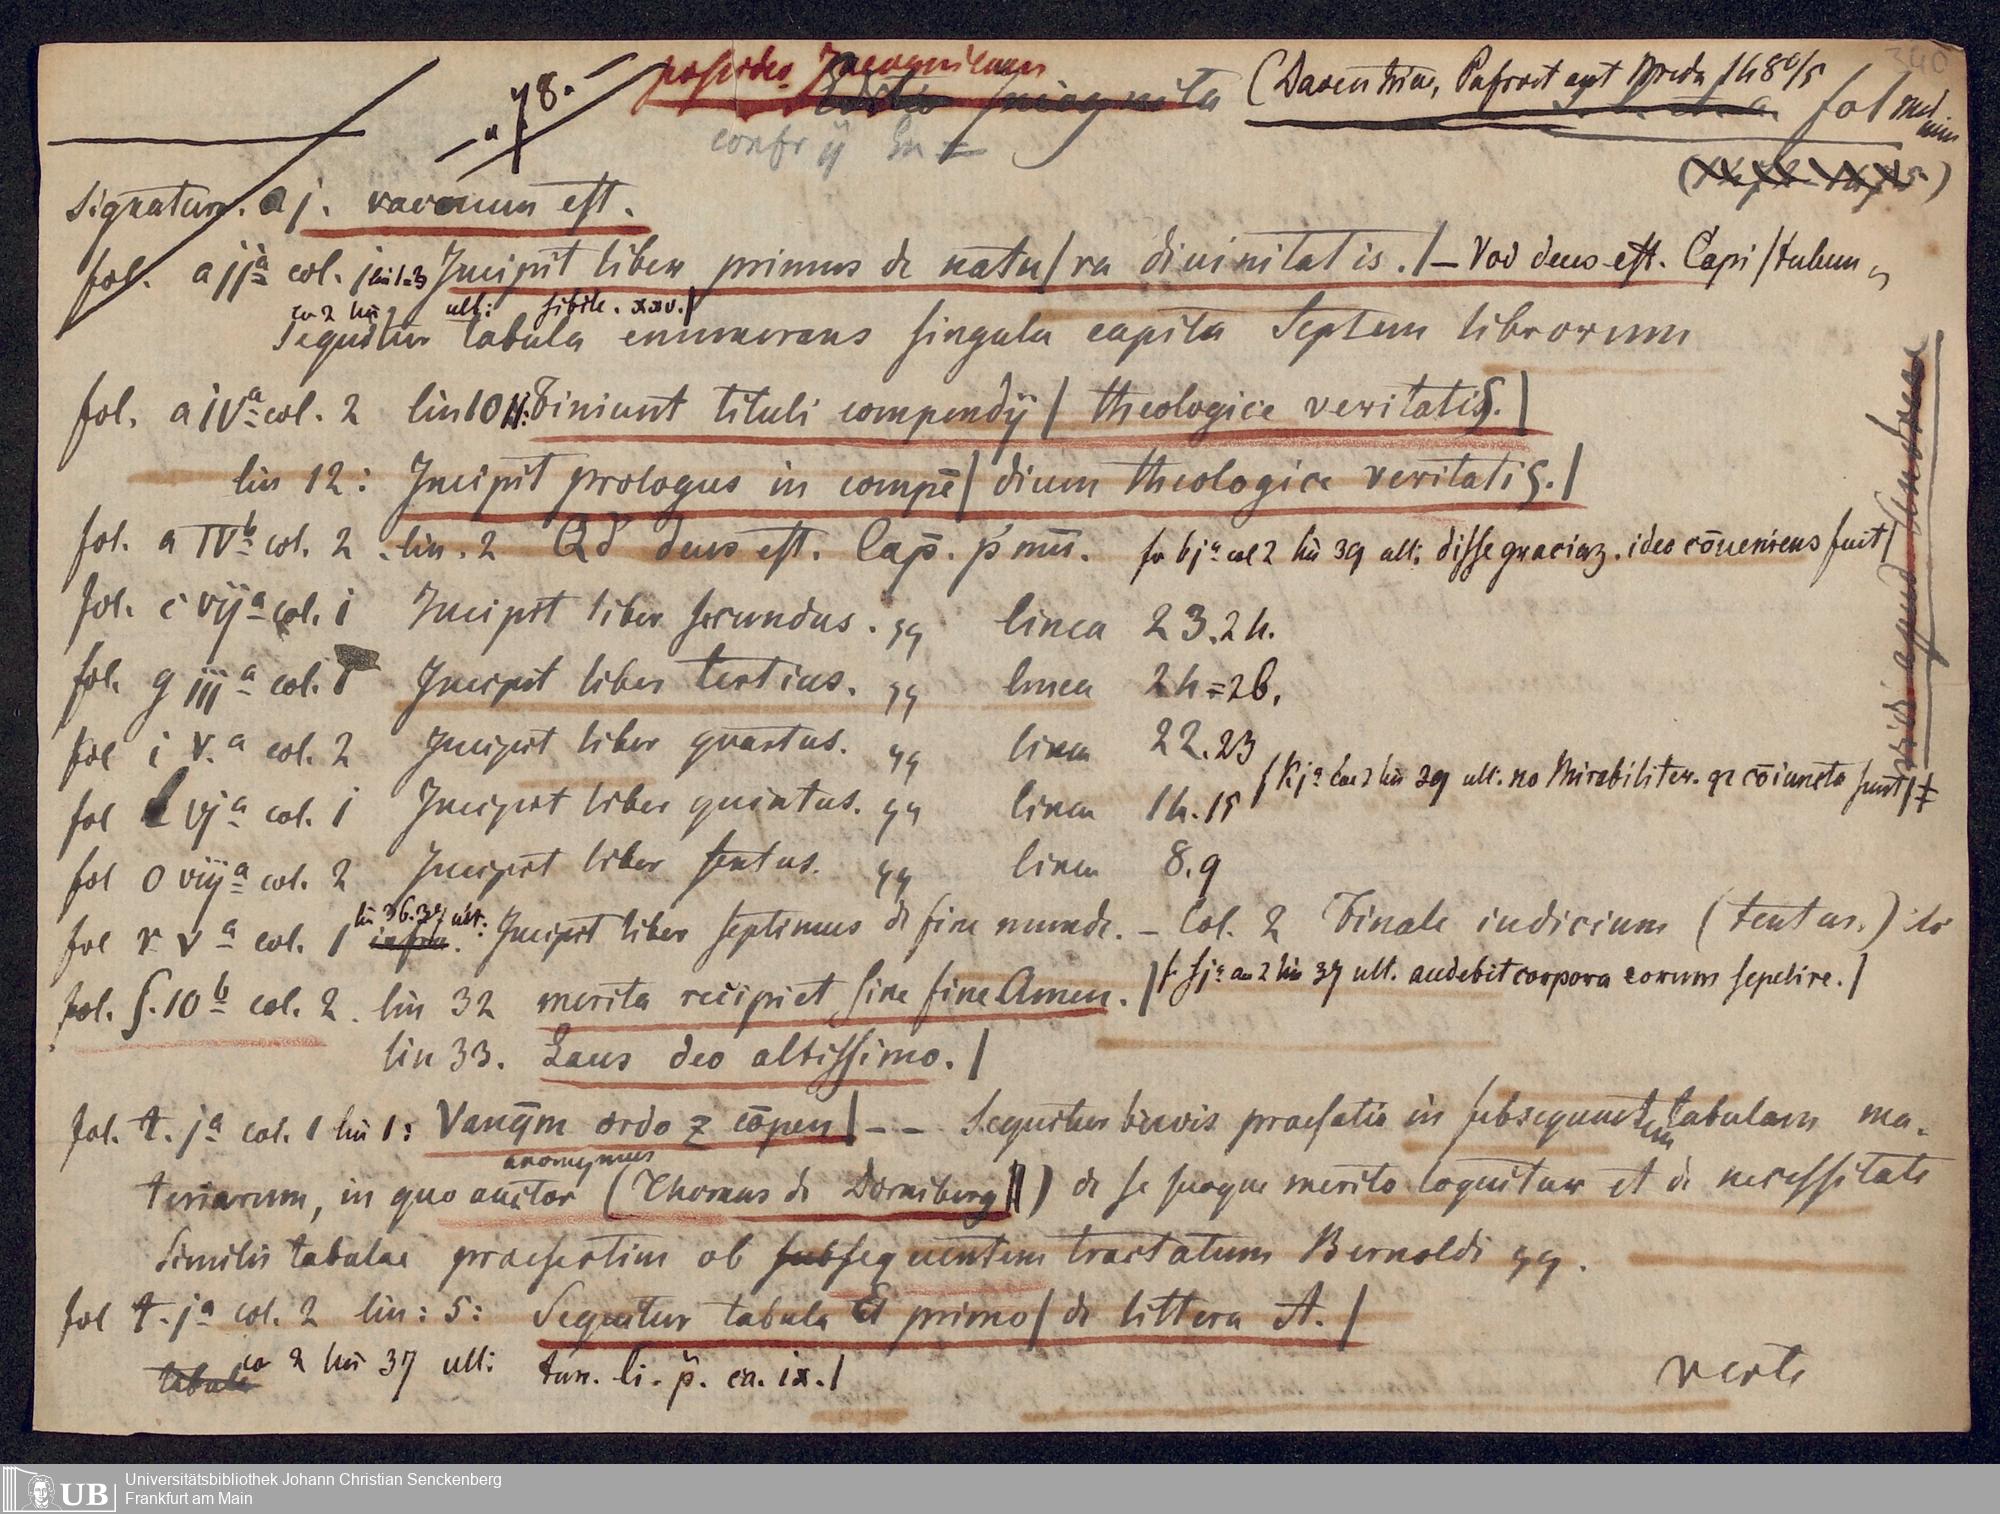 78.
possideo
incognita (Daventriae, Pafroet aut Breda 1480/5 fol
340
Signatura. a j. vacuum est.
fol. a ijª col. j lin 1=3 Incipit liber primus de natu/ra diuinitatis./ – Vod deus est. Capi/tulum
co 2 lin ult: sibile. xxv./
Sequitur tabula enumerans singula capita Septem librorum
fol. a ivª col. 2 lin 10 11: Finiunt tituli compendij / theologice veritatis./
lin 12: Incipit prologus in compē/dium theologice veritatis./
fol. a IVᵇ col. 2 lin. 2 Qd deus est. Cap̄. p'mū. fo bjª col 2 lin 39 ult: disse graciaz. ideo cōueniens fuit/
fol. c vijª col. i Incipit liber secundus. qq linea 23.24.
fol. g iijª col. i Incipit liber tertius. qq linea 24=26.
fol i v.ª col. 2 Incipit liber quartus. qq linea 22.23
f Kjª col 2 lin 39 ult. no Mirabiliter. qz cōiuncta sunt/
fol l vjª col. i Incipit liber quintus. qq linea 14.15
fol o viijª col. 2 Incipit liber sextus. qq linea 8.9
fol r vª col. 1 lin 36.37 ult: Incipit liber septimus de fine mundi. – Col. 2 Finale iudicium (textus.)
f sjª co 2 lin 37 ult. audebit corpora eorum sepelire./
fol. s.10ᵇ col. 2. lin 32 merita recipiet sine fine Amen./
lin 33. Laus deo altissimo./
fol. t. jª col. 1 lin 1: Vanq̄m ordo z cōpen/ – – Sequitur brevis praefatio in subsequentem tabulam ma-
anonymus
teriarum, in quo auctor (Thomas de Dorniberg) de se suoque merito loquitur et de necessitate
Similis tabulae praesertim ob subsequentem tractatum Bernoldi qq.
fol t. jª col. 2 lin: 5: Sequitur tabula Et primo/ de littera A./
co 2 lin 37 ult: tun. li. p̄. ca. ix./
verte
nisi apud
UB
Universitätsbibliothek Johann Christian Senckenberg
Frankfurt am Main